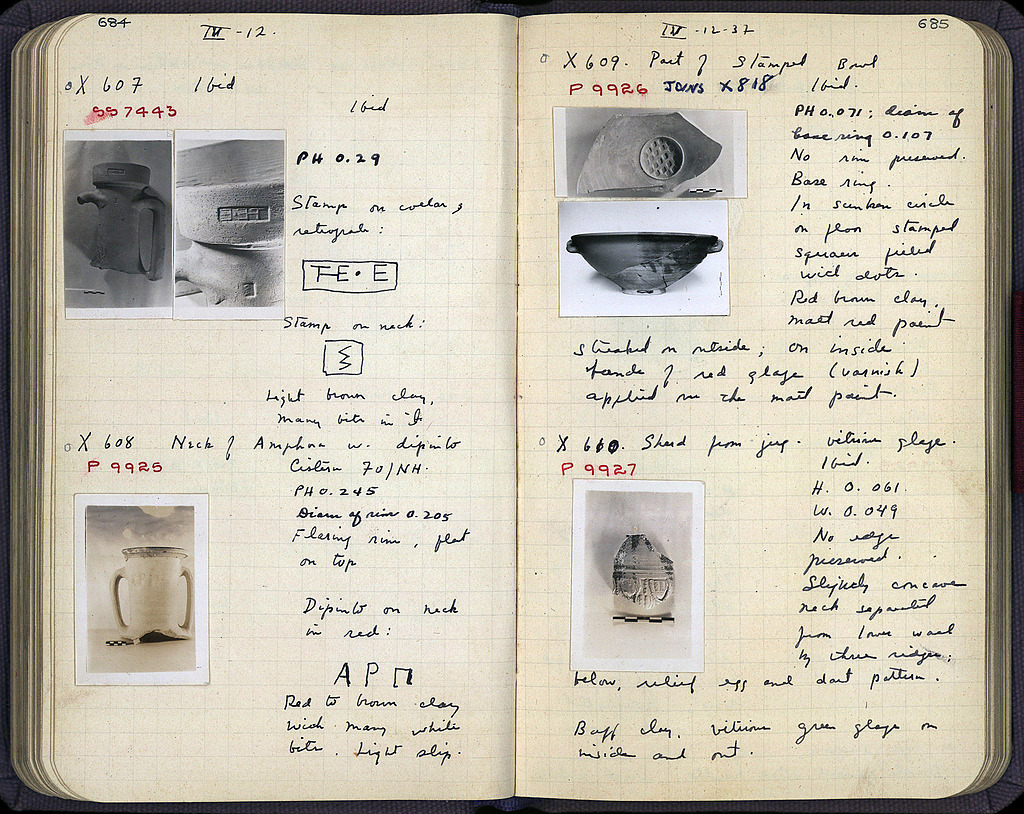 684
IV -12.
X 607 Ibid
SS 7443
Ibid
PH 0.29
Stamp on collar,
retrograde:
TE·E
Stamp on neck:
Σ
Light brown clay,
many bits in it
X 608 Neck of Amphora w. dipinto
P 9925
Cistern 70/NH.
PH 0.245
Diam of rim 0.205
Flaring rim, flat
on top
Dipinto on neck
in red:
Α Ρ Π
Red to brown clay
with many white
bits. Light slip.
685
IV -12-37
X 609. Part of Stamped Bowl
P 9926 JOINS X818 Ibid.
PH 0.071; diam of
base ring 0.107
No rim preserved.
Base ring.
In sunken circle
on floor stamped
square filled
with dots.
Red brown clay.
matt red paint
streaked on outside; on inside
bands of red glaze (varnish)
applied on the matt paint.
X 610. Sherd from jug. vitrious glaze.
P 9927
Ibid.
H. 0.061.
W. 0.049
No edge
preserved.
Slightly concave
neck separated
from lower wall
by three ridges;
below, relief egg and dart pattern.
Buff clay. vitrious green glaze on
inside and out.